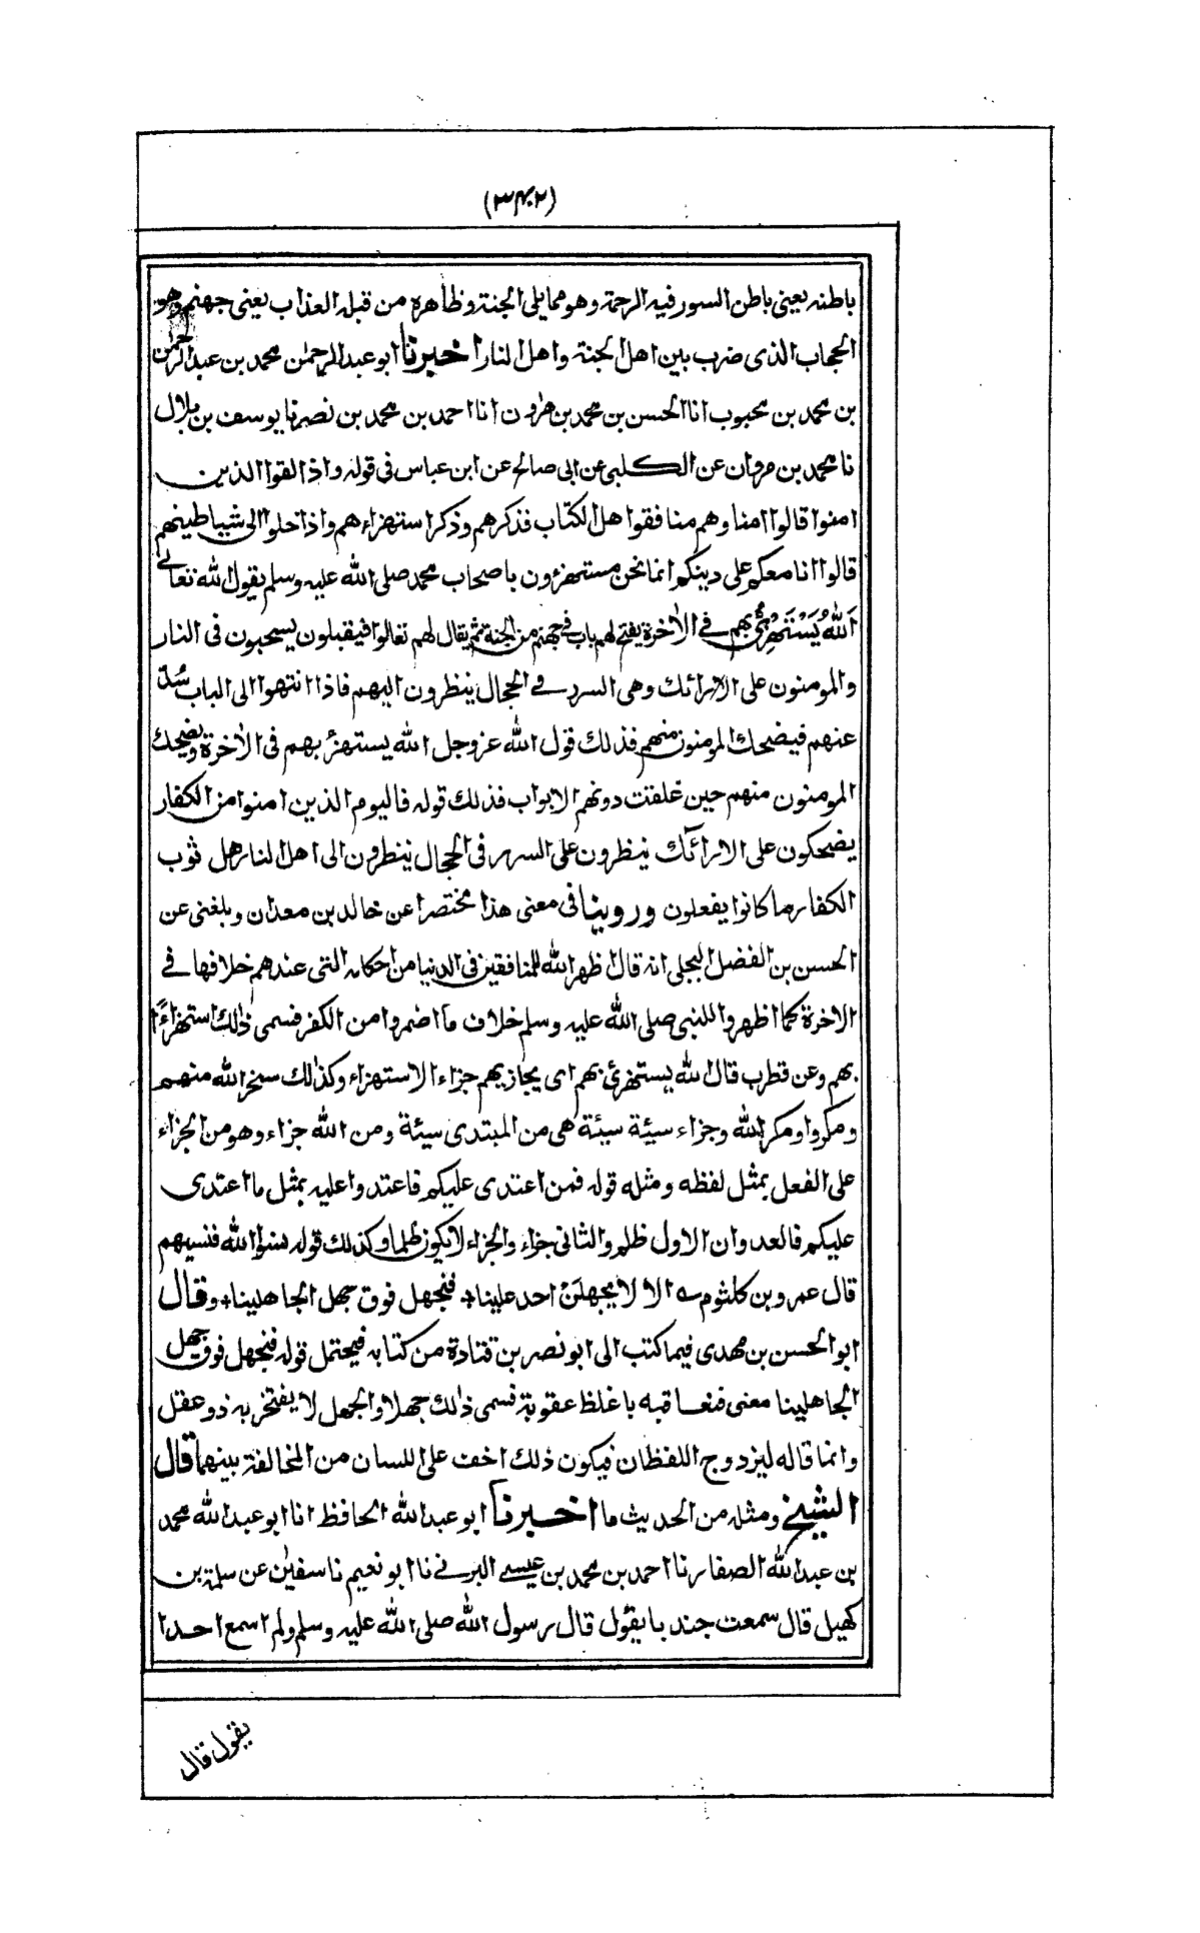 (٣٤٢)
باطنه يعنى باطن السور فيه الرحمة وهو مما يلى الجنة وظاهره من قبله العذاب يعنى جهنم وهو
الحجاب الذى ضرب بين اهل الجنة واهل النار اخبرنا ابو عبد الرحمٰن محمد بن عبد الرحمٰن
بن محمد بن محبوب انا الحسن بن محمد بن هٰرون انا احمد بن محمد بن نصر نا يوسف بن بلال
نا محمد بن مروان عن الكلبى عن ابى صالح عن ابن عباس فى قوله واذا لقوا الذين
امنوا قالوا امنا وهم منافقوا اهل الكتاب فذكرهم وذكر استهزاءهم واذا خلوا الى شياطينهم
قالوا انا معكم على دينكم انما نحن مستهزءون باصحاب محمد صلى الله عليه وسلم يقول الله تعالى
اَللهُ يَسْتَهْزِئُ بهم فى الاٰخرة يفتح لهم باب فى جهنم من الجنة ثم يقال لهم تعالوا فيقبلون يسحبون فى النار
والمومنون على الارائك وهى السرر فى الحجال ينظرون اليهم فاذا انتهوا الى الباب سُدّ
عنهم فيضحك المومنون منهم فذلك قول الله عز وجل الله يستهزئ بهم فى الاٰخرة ويضحك
المومنون منهم حين غلقت دونهم الابواب فذلك قوله فاليوم الذين امنوا من الكفار
يضحكون على الارائك ينظرون على السرر فى الحجال ينظرون الى اهل النار هل ثوب
الكفار ما كانوا يفعلون وروينا فى معنى هذا مختصرا عن خالد بن معدان وبلغنى عن
الحسن بن الفضل البجلى انه قال اظهر الله للمنافقين فى الدنيا من احكامه التى عندهم خلافها فى
الاخرة كما اظهروا للنبى صلى الله عليه وسلم خلاف ما اضمروا من الكفر فسمى ذٰلك استهزاءً
بهم وعن قطرب قال الله يستهزئ بهم اى يجازيهم جزاء الاستهزاء وكذٰلك سخر الله منهم
ومكروا ومكر الله وجزاء سيئة سيئة هى من المبتدى سيئة ومن الله جزاء وهو من الجزاء
على الفعل بمثل لفظه ومثله قوله فمن اعتدى عليكم فاعتدوا عليه بمثل ما اعتدى
عليكم فالعدوان الاول ظلم والثانى جزاء والجزاء لا يكون ظلما وكذلك قوله نسوا الله فنسيهم
قال عمرو بن كلثوم ؎ الا لا يجهلَنْ احد علينا٭ فنجهل فوق جهل الجاهلينا٭ وقال
ابو الحسن بن مهدى فيما كتب الى ابو نصر بن قتادة من كتابه فيحتمل قوله فنجهل فوق جهل
الجاهلينا معنى فنعاقبه باغلظ عقوبة فسمى ذٰلك جهلا والجهل لا يفتخر به ذو عقل
وانما قاله ليزدوج اللفظان فيكون ذلك اخف على اللسان من المخالفة بينهما قال
الشيخ ومثله من الحديث ما اخبرنا ابو عبد الله الحافظ انا ابو عبد الله محمد
بن عبد الله الصفار نا احمد بن محمد بن عيسى البرتى نا ابو نعيم نا سفيٰن عن سلمة بن
كهيل قال سمعت جندبا يقول قال رسول الله صلى الله عليه وسلم ولم اسمع احدا
يقول قال